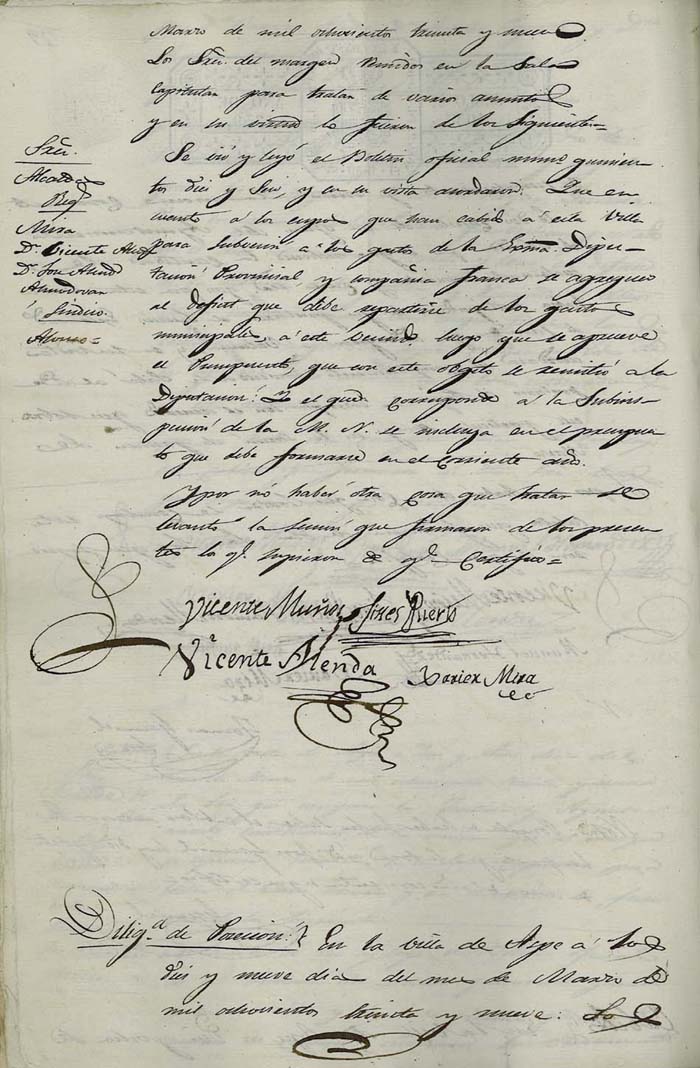 Marzo de mil ochocientos treinta y nueve
Los Sres. del margen Reunidos en la Sala
Capitular para tratar de varios asuntos
y en su virtud lo fueron de los Siguientes=
Sres.
Alcaldes
Regs
Mira
Dn. Vicente Alend
Dn. Jose Alend
Almodovar
Sindico
Alonso=
Se vió y leyó el Boletin oficial num.o quinien-
tos dies y Seis, y en su vista acordaron: Que en
cuanto á los cupos que han cabido á esta Villa
para Subvenir a los gastos de la Exma. Dipu-
tación Provincial, y compañia franca se agregue
al deficit que debe repartirse de los gastos
municipales, á este Vecind. luego que se apruebe
el Presupuesto, que con este objeto se remitió a la
Diputacion: Y el que corresponde á la Subins-
pección de la M. N. se incluya en el presupues
to que debe formarse en el Corriente año.
Y por no haber otra cosa que tratar se
levantó la sesión que firmaron de los presen
tes lo q.e supieron de q.e Certifico=
Vicente Muñoz Gines Rierte
Vicente Alenda Xavier Mira
Dilig.a de Posecion: En la villa de Aspe á los
dies y nueve dia del mes de Marzo de
mil ochocientos treinta y nueve: Los